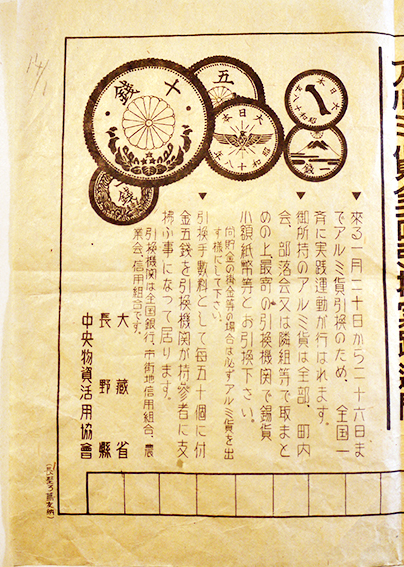 アルミ貨全面引換実践運動
▼來る一月二十日から二十六日ま
でアルミ貨引換のため、全國一
斉に実践運動が行はれます。
▼御所持のアルミ貨は全部、町内
会、部落会又は隣組等で取まと
めの上、最寄の引換機関で錫貨
小額紙幣等とお引換下さい。
尚貯金の掛金等の場合は必ずアルミ貨を出
す様にして下さい。
▼引換手数料として毎五十個に付
金五錢を引換機関が持参者に支
拂ふ事になつて居ります。
引換機関は全國銀行、市街地信用組合、農
業会、信用組合です。
大藏省
長野縣
中央物資活用協會
大日本
昭和十八年
一錢
大日本
昭和十八年
五
十錢
14/1